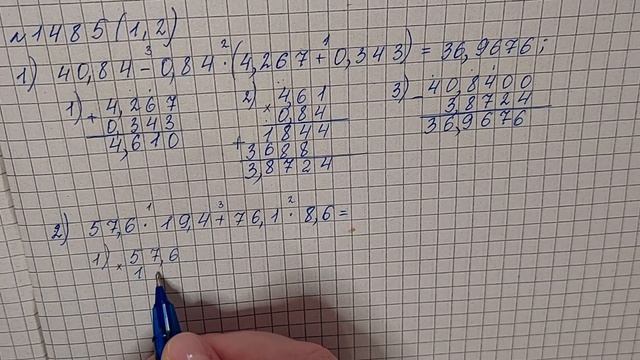 №1485(1,2)
1) 40,84 - 0,84 · (4,267 + 0,343) = 36,9676;
3 2 1
1) 4,267
+ 0,343
4,610
2) 4,61
× 0,84
1844
+ 3688
3,8724
3) 40,8400
- 3,8724
36,9676
2) 57,6 · 19,4 + 76,1 · 8,6 =
1 3 2
1) 57,6
× 1